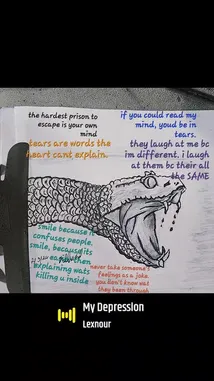 the hardest prison to
escape is your own
mind
tears are words the
heart cant explain.
if you could read my
mind, youd be in
tears.
they laugh at me bc
im different. i laugh
at them bc their all
the SAME
smile because it
confuses people.
smile, because its
easier then
explaining wats
killing u inside
never take someone's
feelings as a joke.
you don't know wat
they been through
My Depression
Lexnour